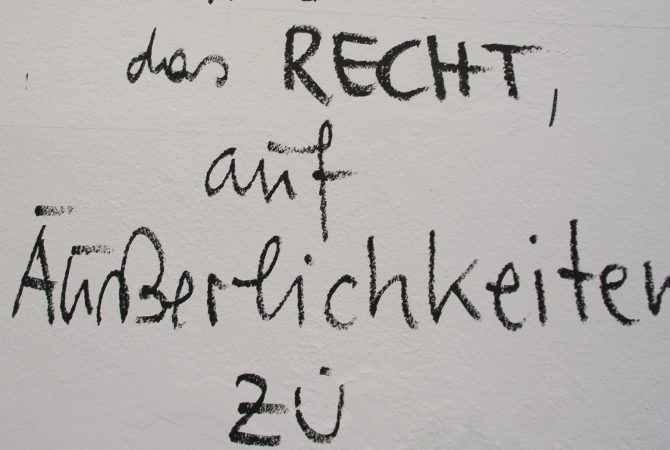 das RECHT,
auf
Äußerlichkeiten
zu